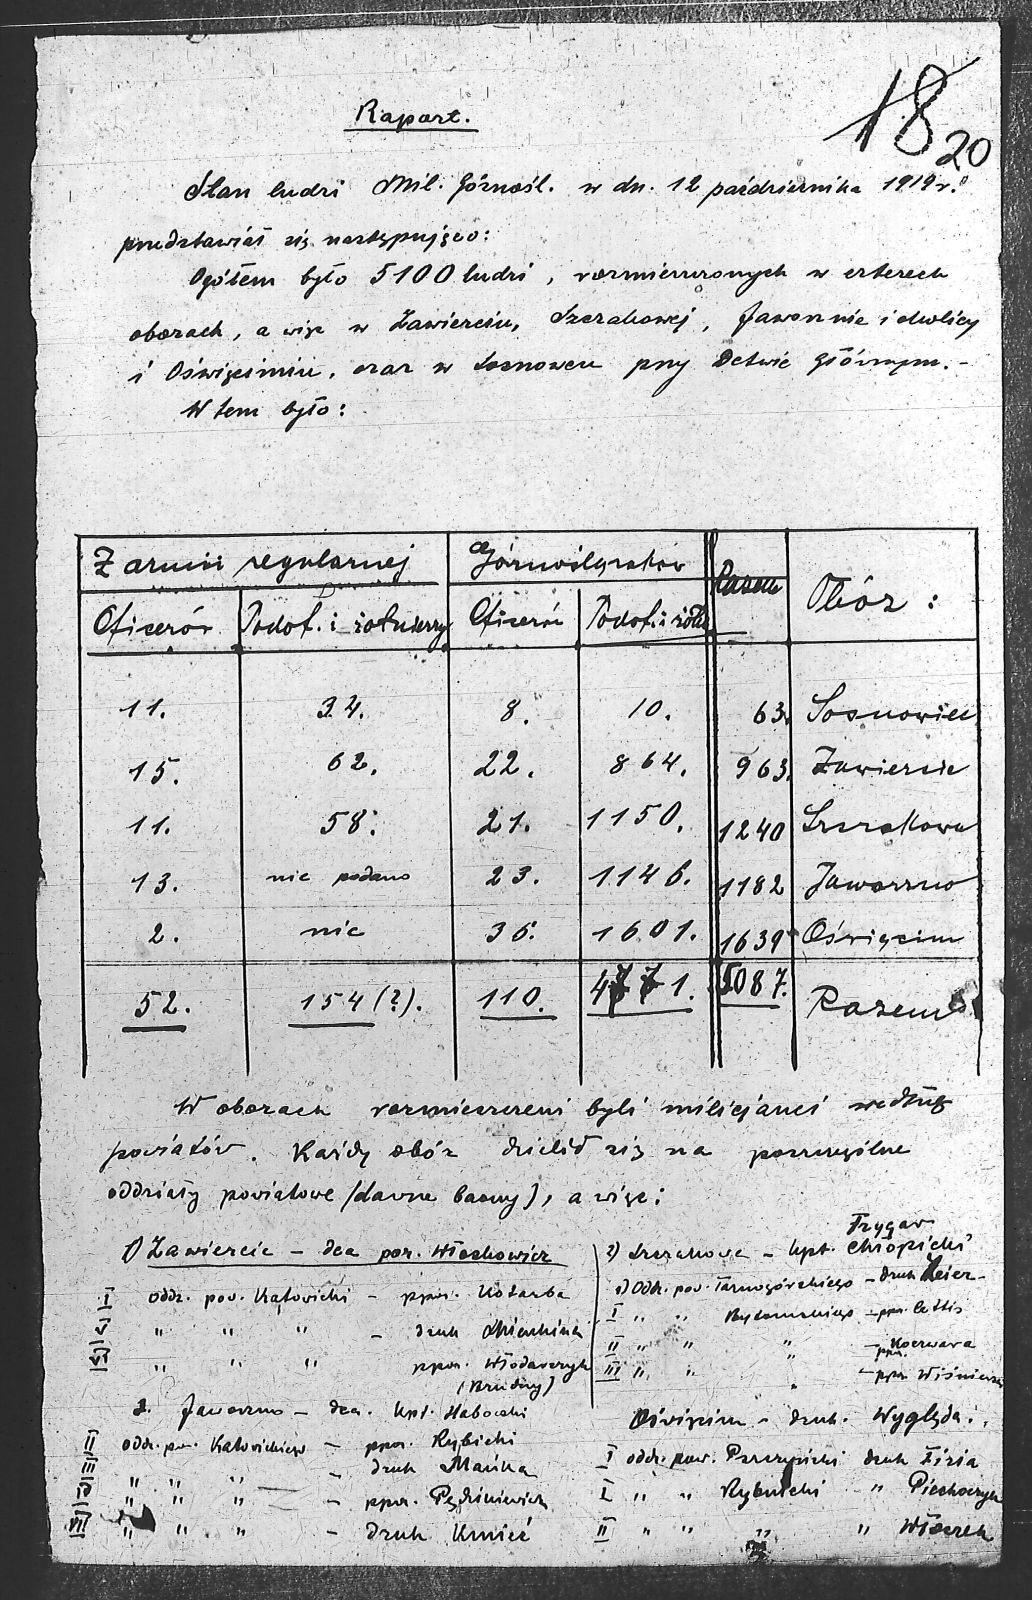 18
20
Raport.
Stan ludzi Mil. Górnośl. w dn. 12 października 1919 r.
przedstawiał się następująco:
Ogółem było 5100 ludzi, rozmieszczonych w czterech
obozach, a więc w Zawierciu, Szczakowej, Jaworznie i okolicy
i Oświęcimiu, oraz w Sosnowcu przy Dctwie Głównym. -
W tem było:
Z armii regularnej Górnoślązaków Razem Obóz :
Oficerów Podof. i żołnierzy Oficerów Podof. i żołn.
11. 34. 8. 10. 63. Sosnowiec
15. 62. 22. 864. 963. Zawiercie
11. 58. 21. 1150. 1240 Szczakowa
13. nie podano 23. 1146. 1182 Jaworzno
2. nie 36. 1601. 1639 Oświęcim
52. 154 (?). 110. 4771. 5087. Razem
W obozach rozmieszczeni byli milicjanci według
powiatów. Każdy obóz dzielił się na poszczególne
oddziały powiatowe /dawne baony/, a więc:
1) Zawiercie - dca por. Włochowicz
I oddz. pow. Katowicki - ppor. Kotarba
" " " - druh
" " " ppor. Włodarczyk
(Brudny)
3. Jaworzno - dca. kpt. Habocki
oddz. pow. Katowickiego - ppor. Rybicki
" " " - druh Mańka
" " " - ppor. Pędziniewicz
" " " - druh Kmieć
Frygar
2) Szczakowa - kpt. Chłopicki
1) Oddz. pow. Tarnogórskiego - druh
I " " Bytomskiego - ppor. Cettis
II " " " - ppor. Koczwara
III " " " - ppor. Wiśniewski
Oświęcim - druh. Wyględa.
I oddz. pow. Pszczyński druh Fizia
I " " Rybnicki " Piechoczyk
II " " " " Włoczek